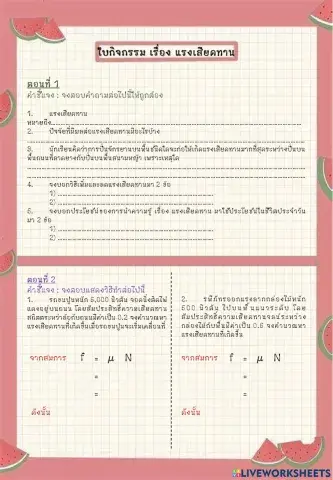 ใบกิจกรรม เรื่อง แรงเสียดทาน
ตอนที่ 1
คำชี้แจง : จงตอบคำถามต่อไปนี้ให้ถูกต้อง
1. แรงเสียดทาน
หมายถึง
2. ปัจจัยที่มีผลต่อแรงเสียดทานมีอะไรบ้าง
3. นักเรียนคิดว่าการปั่นจักรยานบนพื้นชนิดใดจะก่อให้เกิดแรงเสียดทานมากที่สุดระหว่างปั่นบน
พื้นถนนที่ลาดยางกับปั่นบนพื้นสนามหญ้า เพราะเหตุใด
4. จงบอกวิธีเพิ่มและลดแรงเสียดทานมา 2 ข้อ
1)
2)
5. จงบอกประโยชน์ของการนำความรู้ เรื่อง แรงเสียดทาน มาใช้ประโยชน์ในชีวิตประจำวัน
มา 2 ข้อ
1)
2)
ตอนที่ 2
คำชี้แจง : จงตอบแสดงวิธีทำต่อไปนี้
1. รถยนต์หนัก 5,000 นิวตัน จอดนิ่งติดไฟ
แดงอยู่บนถนน โดยสัมประสิทธิ์ความเสียดทาน
สถิตระหว่างล้อกับถนนมีค่าเป็น 0.2 จงคำนวณหา
แรงเสียดทานที่เกิดขึ้นเมื่อรถยนต์จะเริ่มเคลื่อนที่
จากสมการ f = μ N
=
=
ดังนั้น
2. รพีภัทรออกแรงลากกล่องไม้หนัก
500 นิวตัน ไปบนพื้นแนวระดับ โดย
สัมประสิทธิ์ความเสียดทานจลน์ระหว่าง
กล่องไม้กับพื้นมีค่าเป็น 0.5 จงคำนวณหา
แรงเสียดทานที่เกิดขึ้น
จากสมการ f = μ N
=
=
ดังนั้น
LIVEWORKSHEETS